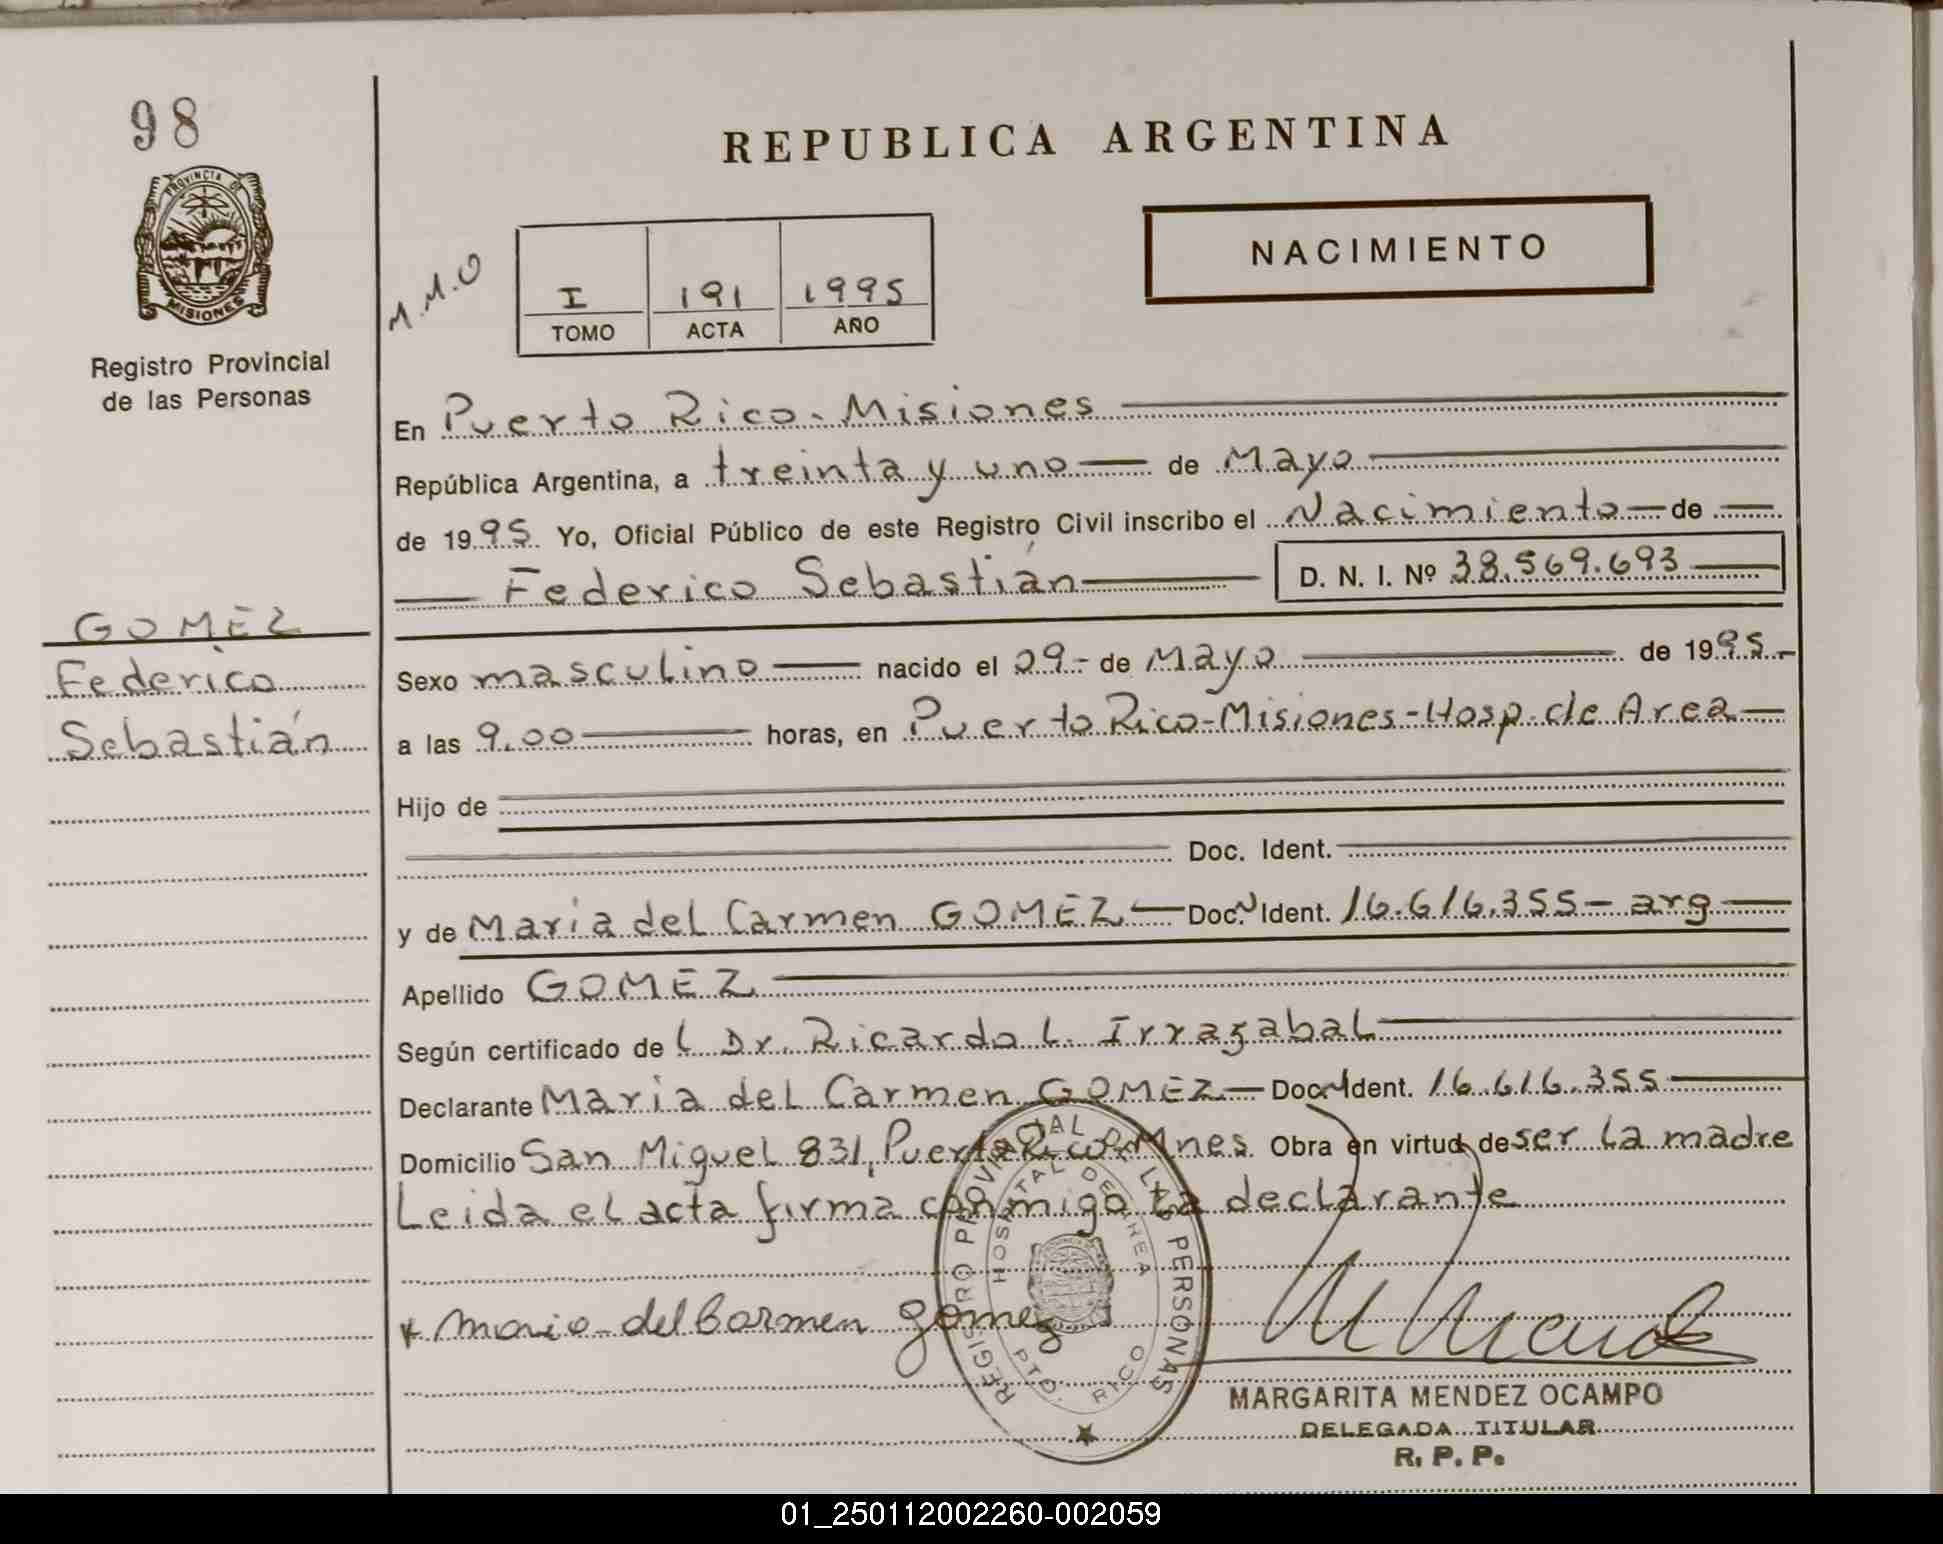 98
PROVINCIA DE
MISIONES
Registro Provincial
de las Personas
GOMEZ
Federico
Sebastián
REPUBLICA ARGENTINA
NACIMIENTO
M.M.O
I 191 1995
TOMO ACTA AÑO
En Puerto Rico - Misiones
República Argentina, a treinta y uno de Mayo
de 1995. Yo, Oficial Público de este Registro Civil inscribo el Nacimiento de
Federico Sebastián D. N. I. Nº 38.569.693
Sexo masculino nacido el 29 - de Mayo de 1995.-
a las 9.00 horas, en Puerto Rico-Misiones-Hosp. de Area
Hijo de
Doc. Ident.
y de María del Carmen GOMEZ Doc. Ident. 16.616.355 - arg
Apellido GOMEZ
Según certificado de l Dr. Ricardo L. Irrazabal
Declarante María del Carmen GOMEZ Doc. Ident. 16.616.355
Domicilio San Miguel 831, Puerto Rico Mnes. Obra en virtud de ser la madre
Leida el acta firma conmigo la declarante
REGISTRO PROVINCIAL DE LAS PERSONAS
HOSPITAL DE AREA
PTO. RICO
x Maria del Carmen Gomez
MARGARITA MENDEZ OCAMPO
DELEGADA TITULAR
R. P. P.
01_250112002260-002059